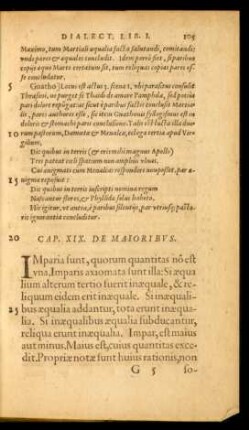 DIALECT. LIB. I. 105
Maximo, tum Martiali æqualia facta salutandi, comitandi
unde pares & æquales concludit. Idem potes fuit, si paribus
copijs cum Marte certatum sit, tum reliquas copias pares es-
se concludatur.
5 Gnatho] Locus est actu 3. scena 1. ubi parasitus consulit
Thrasoni, ne purgat se Thaidi de amore Pamphilæ, sed potius
pari dolore repugnet: ac sicut è paribus factis conclusit Martia-
lis, pares authores esse, sic item Gnathonis fastigiosus est in
dolore & stomacho pares concludit. Talis est
10 rum pastorum, Damœtæ & Menalcæ, eclogà tertia apud Vir-
gilium,
Dic quibus in terris (& eris mihi magnus Apollo)
Tres pateat cæli spatium non amplius ulnas.
Cui ænigmati cum Menalcas respondere non posset, par æ-
15 nigma reposuit:
Dic quibus in terris inscripti nomina regum
Nascantur flores, & Phyllida solus habeto.
Hic igitur, ut antea, è paribus silentijs, par utriusque pasto-
ris ignorantia concluditur.
20 CAP. XIX. DE MAIORIBVS.
IMparia sunt, quorum quantitas nõ est
vna. Imparis axiomata sunt illa: Si inæqua
lium alterum tertio fuerit inæquale, & re-
liquum eidem erit inæquale. Si inæquali-
25 bus æqualia addantur, tota erunt inæqua-
lia. Si inæqualibus æqualia subducantur,
reliqua erunt inæqualia. Impar, est maius
aut minus. Maius est, cuius quantitas exce-
dit. Propriæ notæ sunt huius rationis, non
G 5 so-